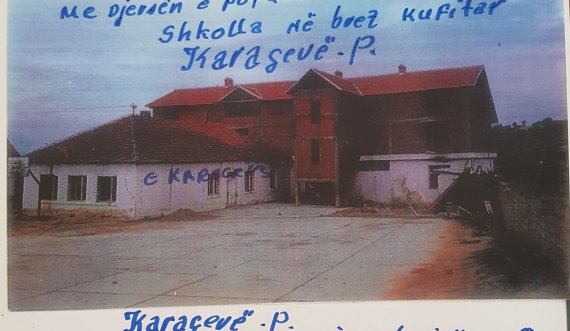 Me Djersën e
Shkolla në brez Kufitar
Karaçevë-P.
E KARAÇEVË
Karaçevë-P.